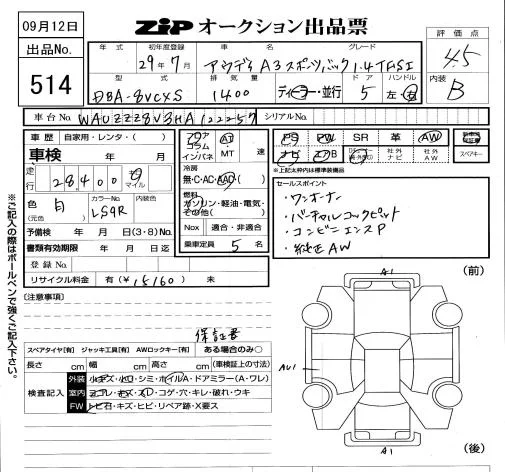 09月12日
ZIP オークション出品票
評価点
4.5
内装
B
出品No.
514
年式 初年度登録 車名 グレード
29年7月 アウディ A3スポーツバック 1.4TFSI
型式 排気量 ドア ハンドル
DBA-8VCXS 1400 ディーラー・並行 5 左・右
車台No. WAUZZZ8V3HA122257 シリアルNo.
車歴 自家用・レンタ・( )
車検 年 月
走行 28,400 km マイル
色 (元色) 白 カラーNo. LS9R 内装色
予備検 年 月 日(3・8)もの
書類有効期限 年 月 日迄
登録No.
リサイクル料金 有(¥15160)未
フロア コラム インパネ AT MT 速
冷房
無・C・AC・AAC・( )
燃料
ガソリン・軽油・電気・その他( )
Nox 適合・非適合
乗車定員 5 名
PS PW SR 革 AW
ナビ TV B 社外ナビ 社外AW スペアキー
*上記太枠内は標準装備品
セールスポイント
・ワンオーナー
・バーチャルコックピット
・コンビニエンスP
・純正AW
※ご記入の際はボールペンで強くご記入下さい。
[注意事項]
保証書
スペアタイヤ[有] ジャッキ工具[有] AWロックキー[有] ある場合のみ○
長さ cm 幅 cm 高さ cm (車検証上の寸法)
検査記入
外装 小キズ・小凹・シミ・ホイルA・ドアミラー(A・ワレ)
室内 ヨゴレ・キズ・スレ・コゲ・穴・キレ・破れ・ウキ
FW トビ石・キズ・ヒビ・リペア跡・X要ス
(前)
A1
AU1
A1
(後)